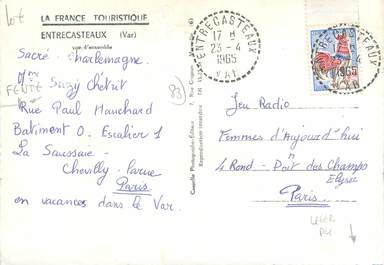 Lot
LA FRANCE TOURISTIQUE
ENTRECASTEAUX (Var)
vue d'ensemble
Sacré Charlemagne.
Mme Suzy Chétrit
FENTE
Rue Paul Hauchard
Batiment O. Escalier 1
La Saussaie-
Chevilly-Larue
Paris
en vacances dans le Var.
83
Photographe-Editeur
Reproduction interdite
ENTRECASTEAUX
17 H
23-4
1965
VAR
ENTRECASTEAUX
1965
VAR
Jeu Radio
Femmes d'Aujourd'hui
4 Rond-Point des Champs
Elysées
Paris
LEGER
PLI